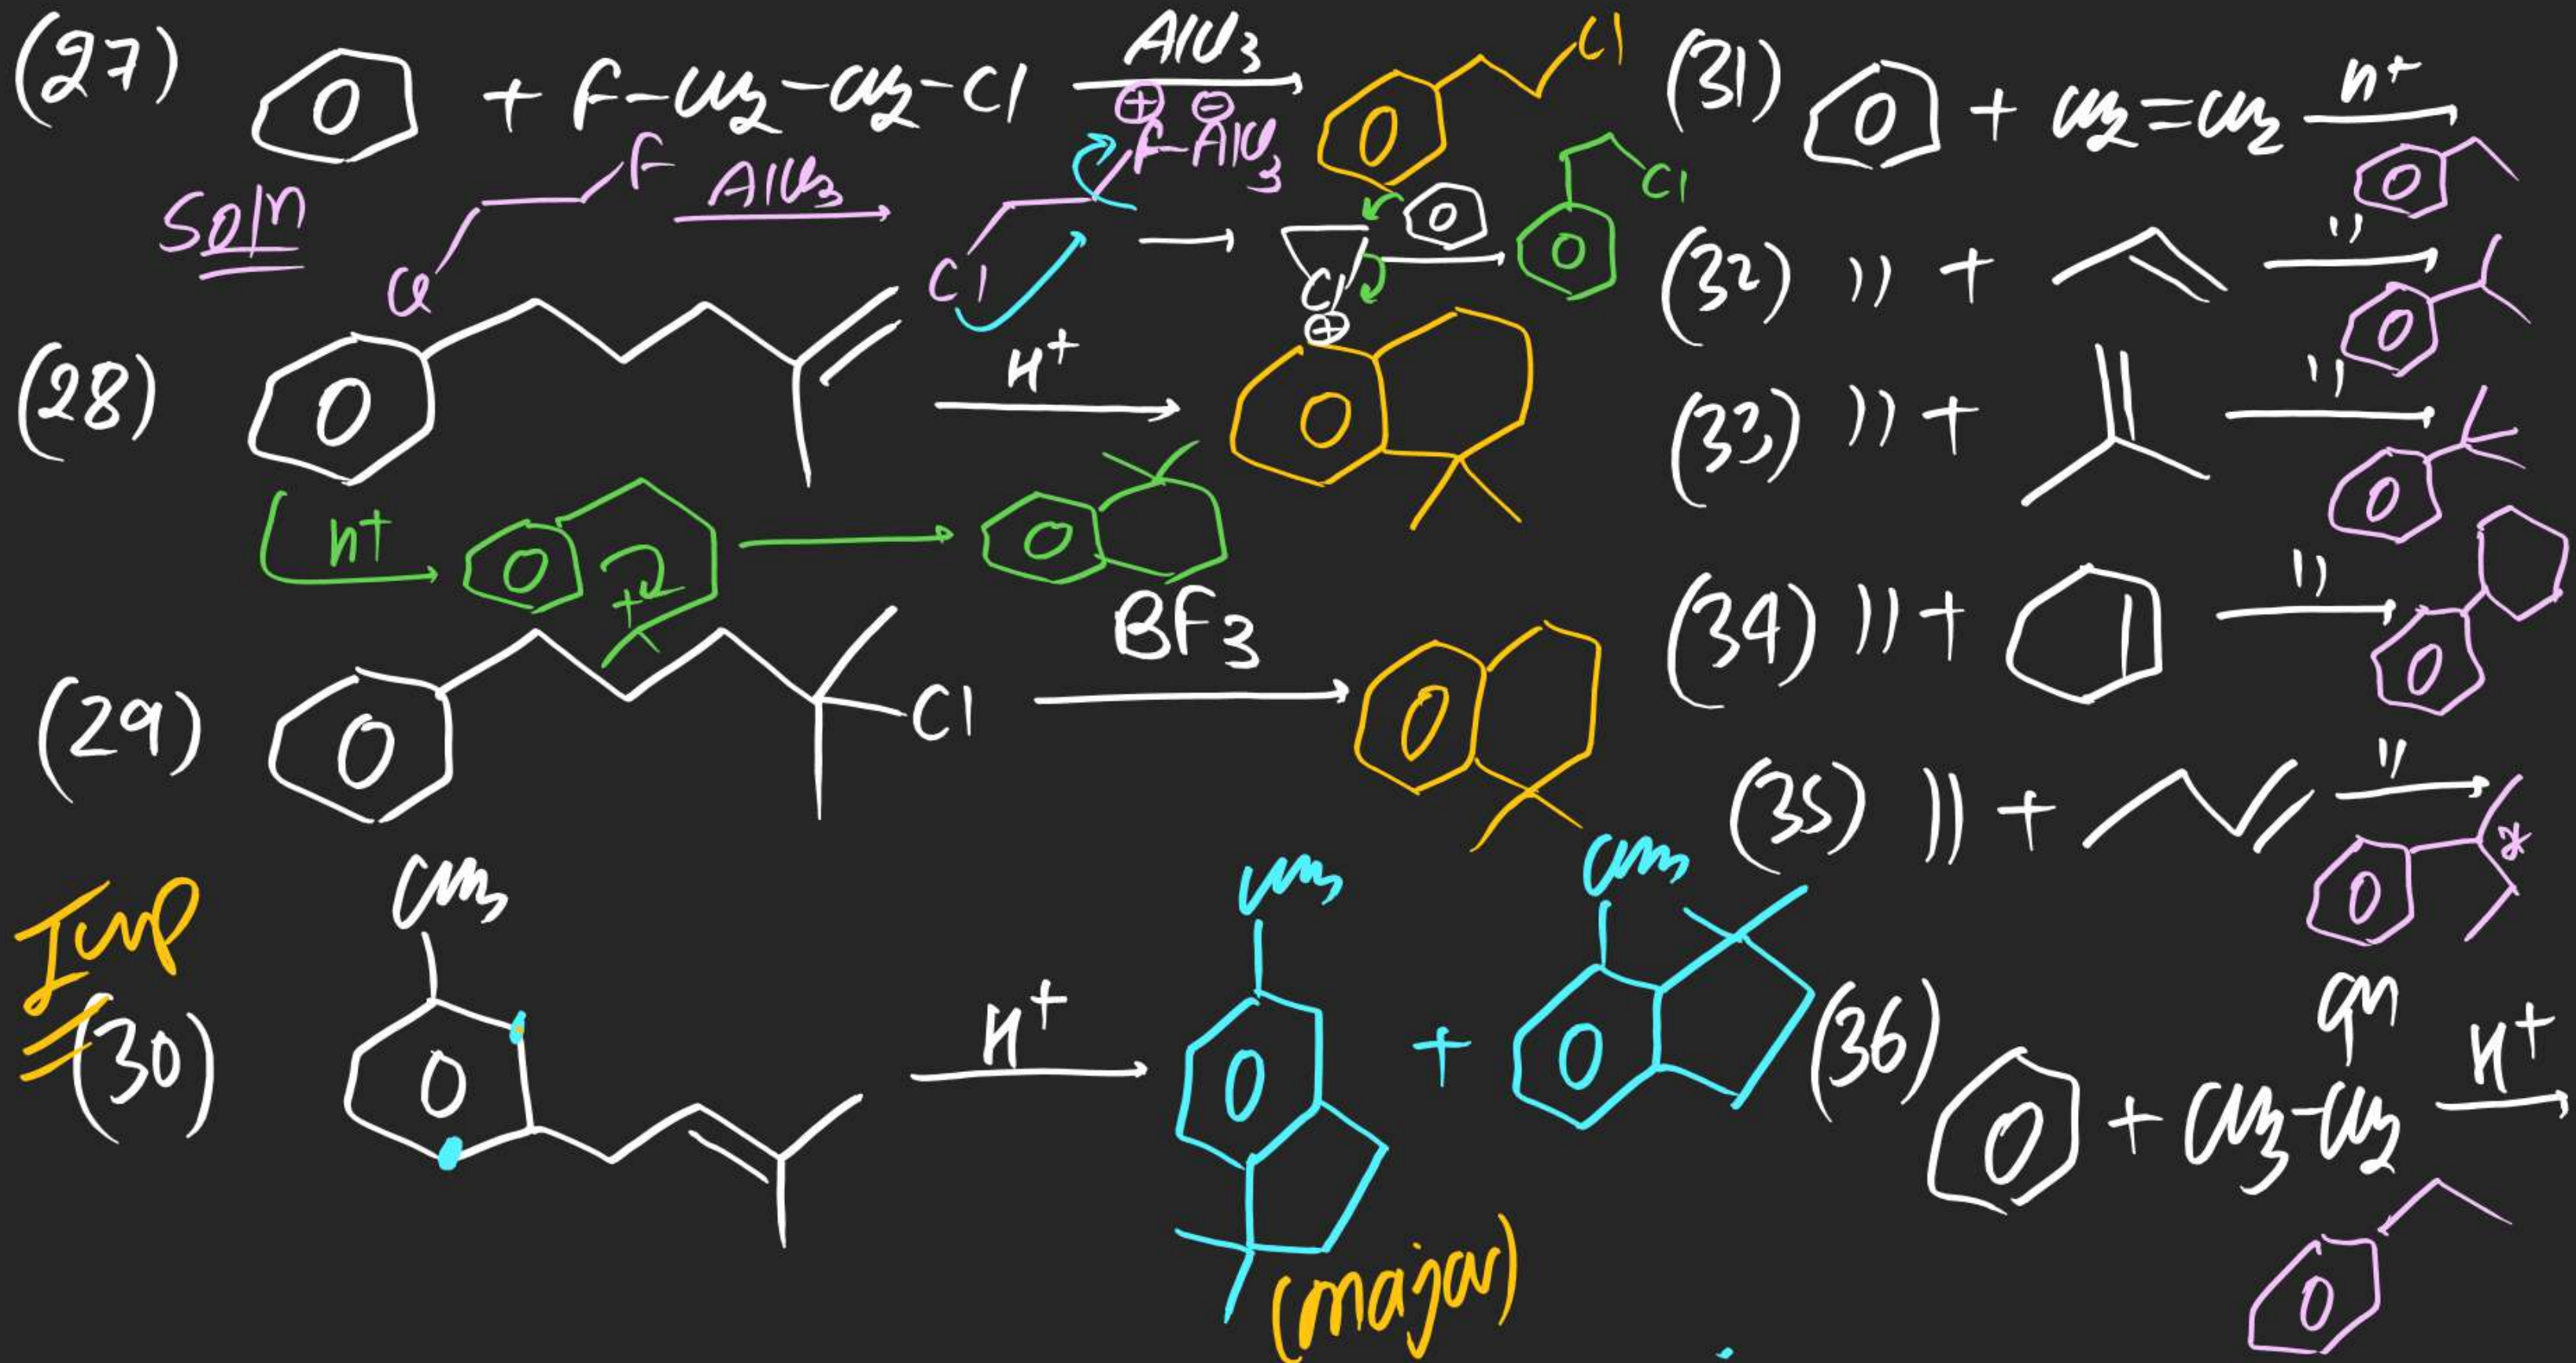 (27) + F-CH2-CH2-Cl AlCl3 Cl
Soln F Cl AlCl3 Cl ⊕ ⊖ F-AlCl3 Cl ⊕ Cl
(28) H+
H+ +
(29) Cl BF3
Imp
(30) CH3 H+ CH3 + CH3
(major)
(31) + CH2=CH2 H+
(32) " + "
(33) " + "
(34) " + "
(35) " + " *
(36) + CH3-CH2 OH H+